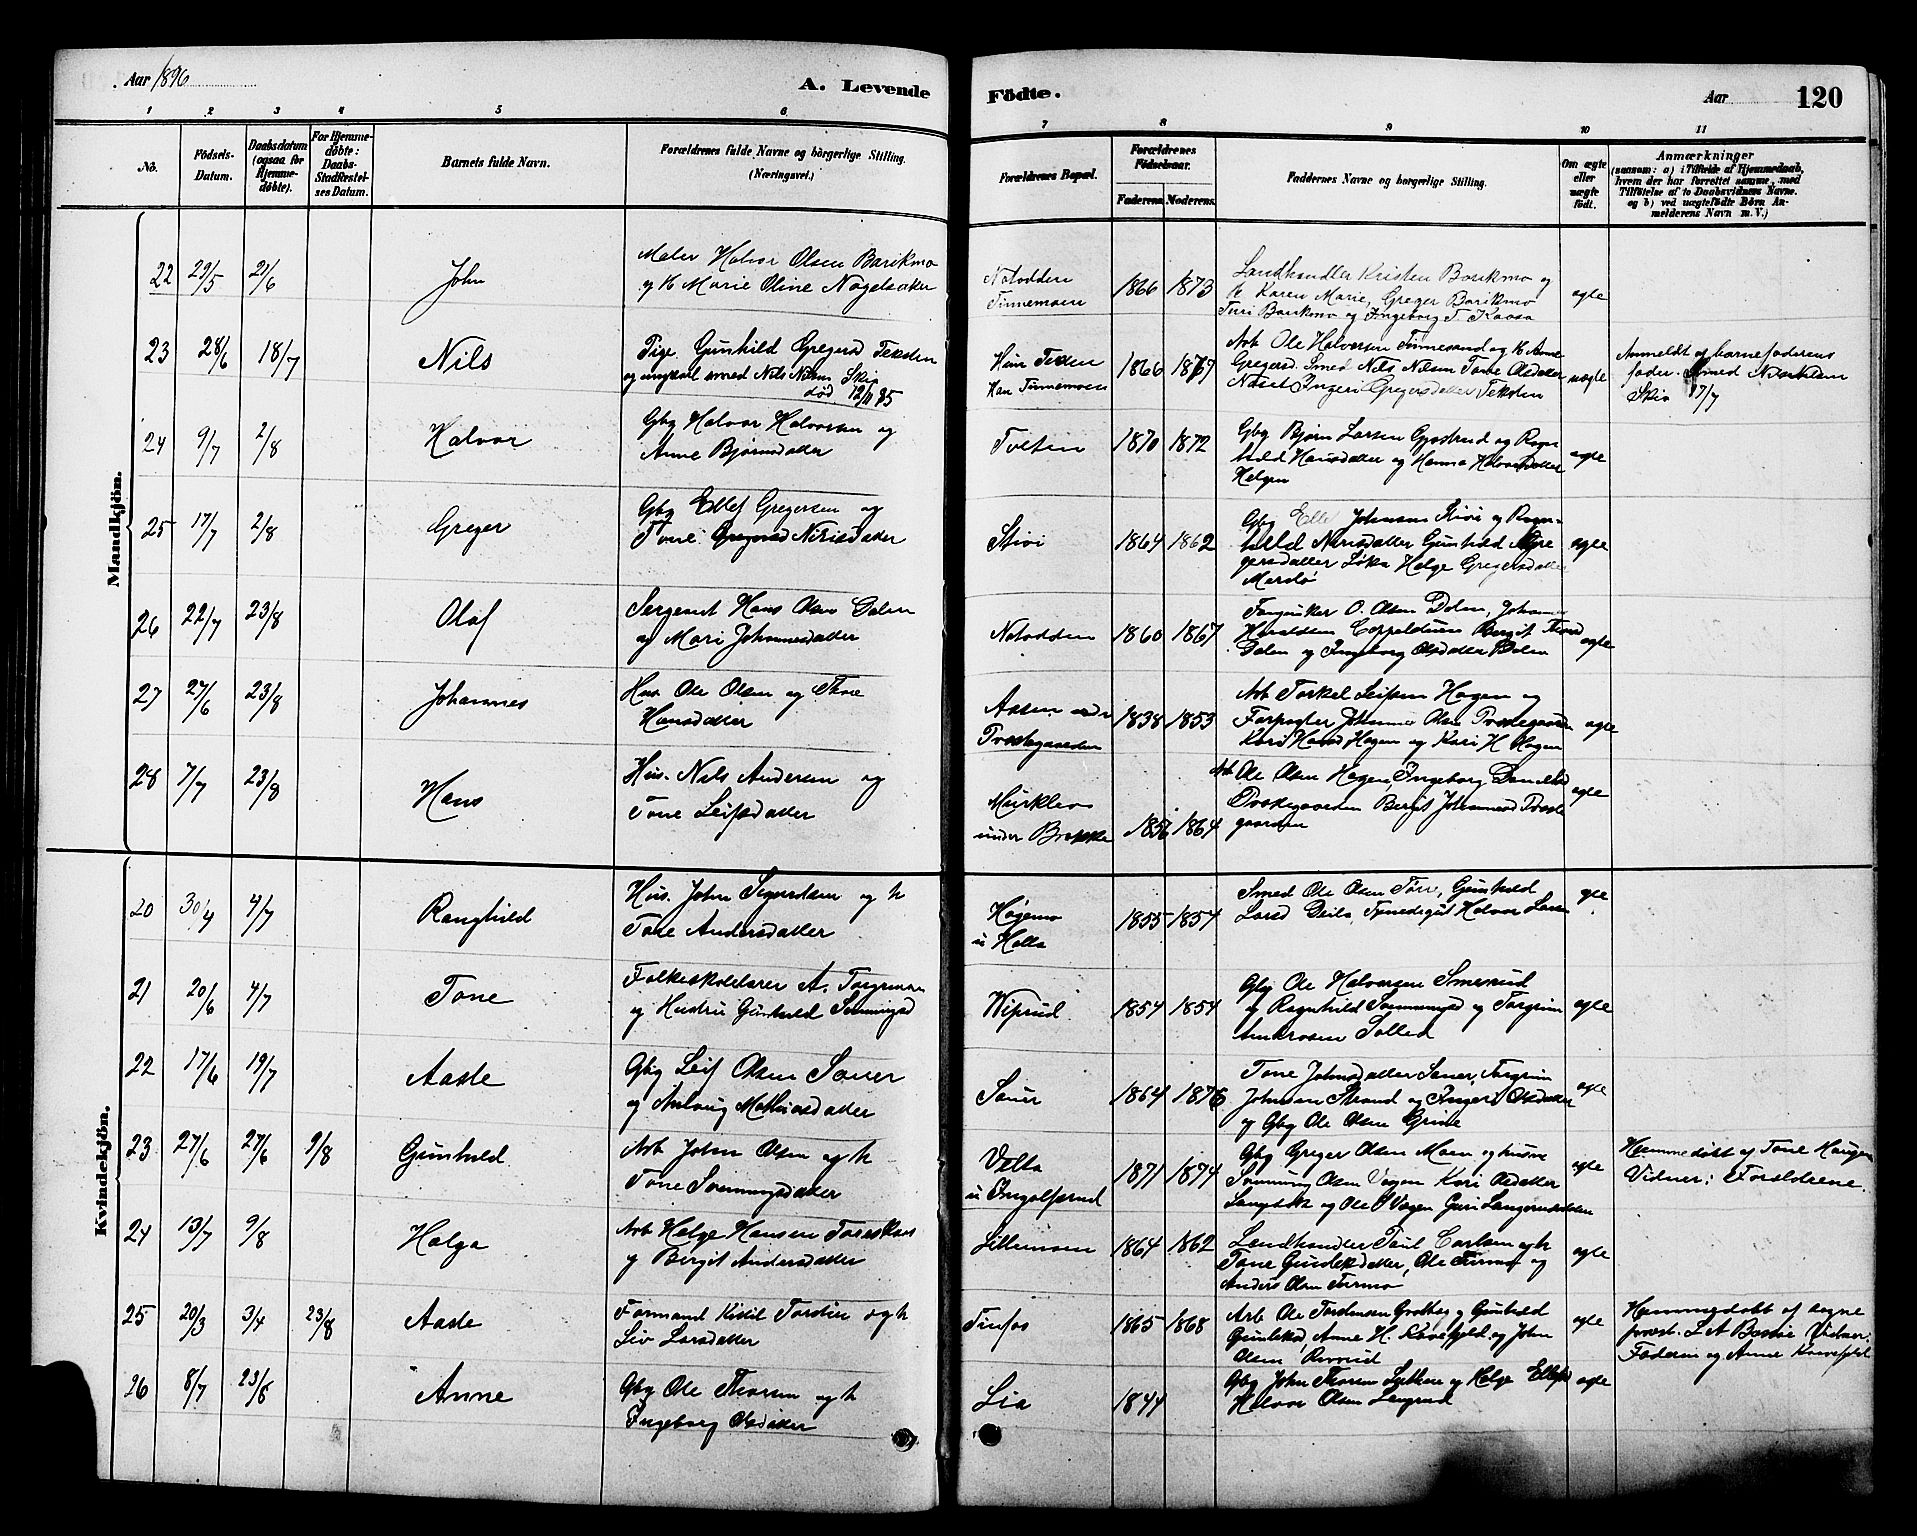 Aar 1896
A. Levende
Födte.
Aar
120
1 2 3 4 5 6 7 8 9 10 11
No.
Födsels-
Datum.
Daabsdatum
(ogsaa for
Hjemme-
döbte).
For Hjemme-
döbte:
Daabs-
Stadfæstel-
ses Datum.
Barnets fulde Navn.
Forældrenes fulde Navne og borgerlige Stilling.
(Næringsvei.)
Forældrenes Bopæl.
Forældrenes
Födselsaar.
Faderens Moderens.
Faddernes Navne og borgerlige Stilling.
Om ægte
eller
uægte
födt.
Anmærkninger
(saasom: a) i Tilfælde af Hjemmedaab,
hvem der har forrettet samme, med
Tilföielse af to Daabsvidners Navne.
og b) ved uægtefödte Börn An-
melderens Navn m. V.)
Mandkjön.
22 29/5 21/6 John
Maler Halvor Olsen Barikmo
og k Marie Oline Nagelsaker
Notodden
Tinnemoen
1866 1873
Landhandler Kristen Barikmo og
k Karen Marie, Greger Barikmo
Turi Barikmo og Ingeborg T. Kaasa
ægte
23 28/6 18/7 Nils
Pige Gunhild Gregersd Teksten
og ungkarl smed Nils Nilsen Skie
död 12/11 95
Hun Teksten
Han Tinnemoen
1866 1869
Arb Ole Halvorsen Tinnesand og k Anne
Gregersd. Smed Nils Nilsen Tone Olsdatter
Næset Ingeri Gregersdatter Teksten
uægte
Anmeldt af barnefaderens
fader. Smed Nils Nilsen
Skie 17/7
24 9/7 2/8 Halvor
Gbg Halvor Halvorsen og
Anne Bjørnsdatter
Tveten
1870 1872
Gbg Bjørn Larsen Grostrud og Ragn-
hild Hansdatter og Hanna Halvorsdatter
Helgen
ægte
25 17/7 2/8 Greger
Gbg Ellef Gregersen og
Tone Gregersd Nirisdatter
Skivi
1864 1862
Gbg Ellef Johnsen Skivi og Ragn-
hild Nirisdatter Gunhild Gre
gersdatter Løka Helge Gregersdatter
ægte
26 22/7 23/8 Olaf
Sergeant Hans Olsen Dalen
og Mari Johannesdatter
Notodden
1860 1867
O. Olsen Dalen, Johannes
Haraldsen Bergit
Dalen og Ingeborg Olsdatter Dalen
ægte
27 27/6 23/8 Johannes
Hus Ole Olsen og Tone
Hansdatter
Aasen under
Præstegaarden
1838 1853
Arb Torkel Leifsen Hagen og
Forpagter Johannes Olsen Præstegaarden
Kari Hansd Hagen og Kari H Hagen
ægte
28 7/7 23/8 Hans
Hus. Nils Andersen og
Tone Leifsdatter
under Brække
1856 1864
Arb Ole Olsen Hagen, Ingeborg
Præstegaarden Bergit Johannesd Præste
gaarden
ægte
Kvindekjön.
20 30/4 4/7 Ranghild
Hus. John Sigurdsen og k
Tone Andersdatter
Høgemo
u Holla
1855 1854
Smed Ole Olsen Tone, Gunhild
Larsd Halvor Larsen
ægte
21 20/6 4/7 Tone
Folkeskolelærer A. Torgrimsen
og Hustru Gunhild Sveinungsd
Wiprud
1854 1854
Gbg Ole Halvorsen Smerud
og Ragnhild Sveinungsd og Torgrim
Ambrosen Solled
ægte
22 17/6 19/7 Aaste
Gbg Leif Olsen Sauer
og Aslaug Mathiasdatter
Sauer
1864 1876
Tone Johnsdatter Sauer, Torgrim
Johnsen Strand og Ingeri Olsdatter
og Gbg Ole Olsen Grime
ægte
23 27/6 27/6 9/8 Gunhild
Arb John Olsen og k
Tone Sveinungsdatter
Velta
u Ingolfsrud
1871 1874
Gbg Greger Olsen Moen og husmd
Sveinung Olsen Vegen Kari Olsdatter
og Ole O Vegen Guri
ægte
Hjemmedøbt af Tone Haugen
Vidner: Forældrene
24 13/7 9/8 Helga
Arb Helge Hansen
og Bergit Andersdatter
Lillemoen
1864 1862
Landhandler Paul Carlsen og k
Tone Gunleksdatter, Ole Turmo og
Anders Olsen Turmo
ægte
25 20/3 3/4 23/8 Aaste
Formand Kittil Tordsen og k
Liv Larsdatter
Tinfos
1865 1868
Arb Ole Tordensen Grotbæg og Gunhild
Gunleiksd, Anne H. Kaasefjeld og John
Olsen
ægte
Hjemmedøbt af sogne
præst. Vidner.
Faderen og Anne Kaasefjeld
26 8/7 23/8 Anne
Gbg Ole Thorsen og k
Ingeborg Olsdatter
Lia
1844
Gbg John Thorsen og Helge Ellefsd
Halvor Olsen
ægte